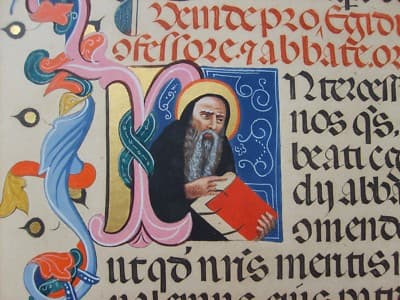 Deinde pro, Egidi
ofessore. ⁊ abbate. or
Intercess
nos qs,
beati eg
dij abba
omende
ut qd nris meritis
valemus eius